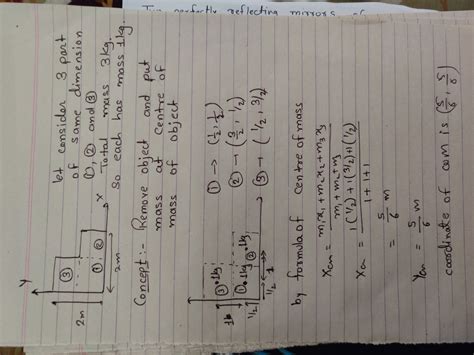 Two perfectly reflecting mirrors
let consider 3 part
of same dimension
①, ② and ③
Total mass 3kg.
so each has mass 1kg
Y
③
① ②
X
2m
2m
Concept:- Remove object and put
mass at centre of
mass of object
③ •1kg
①•1kg ②•1kg
1/2
1/2 1
① → (1/2, 1/2)
② → (3/2, 1/2)
③ → (1/2, 3/2)
by formula of centre of mass
Xcm = m₁x₁+m₂x₂+m₃x₃ / m₁+m₂+m₃
Xcm = 1(1/2)+1(3/2)+1(1/2) / 1+1+1
= 5/6 m
Ycm = 5/6 m
coordinate of com is (5/6, 5/6)